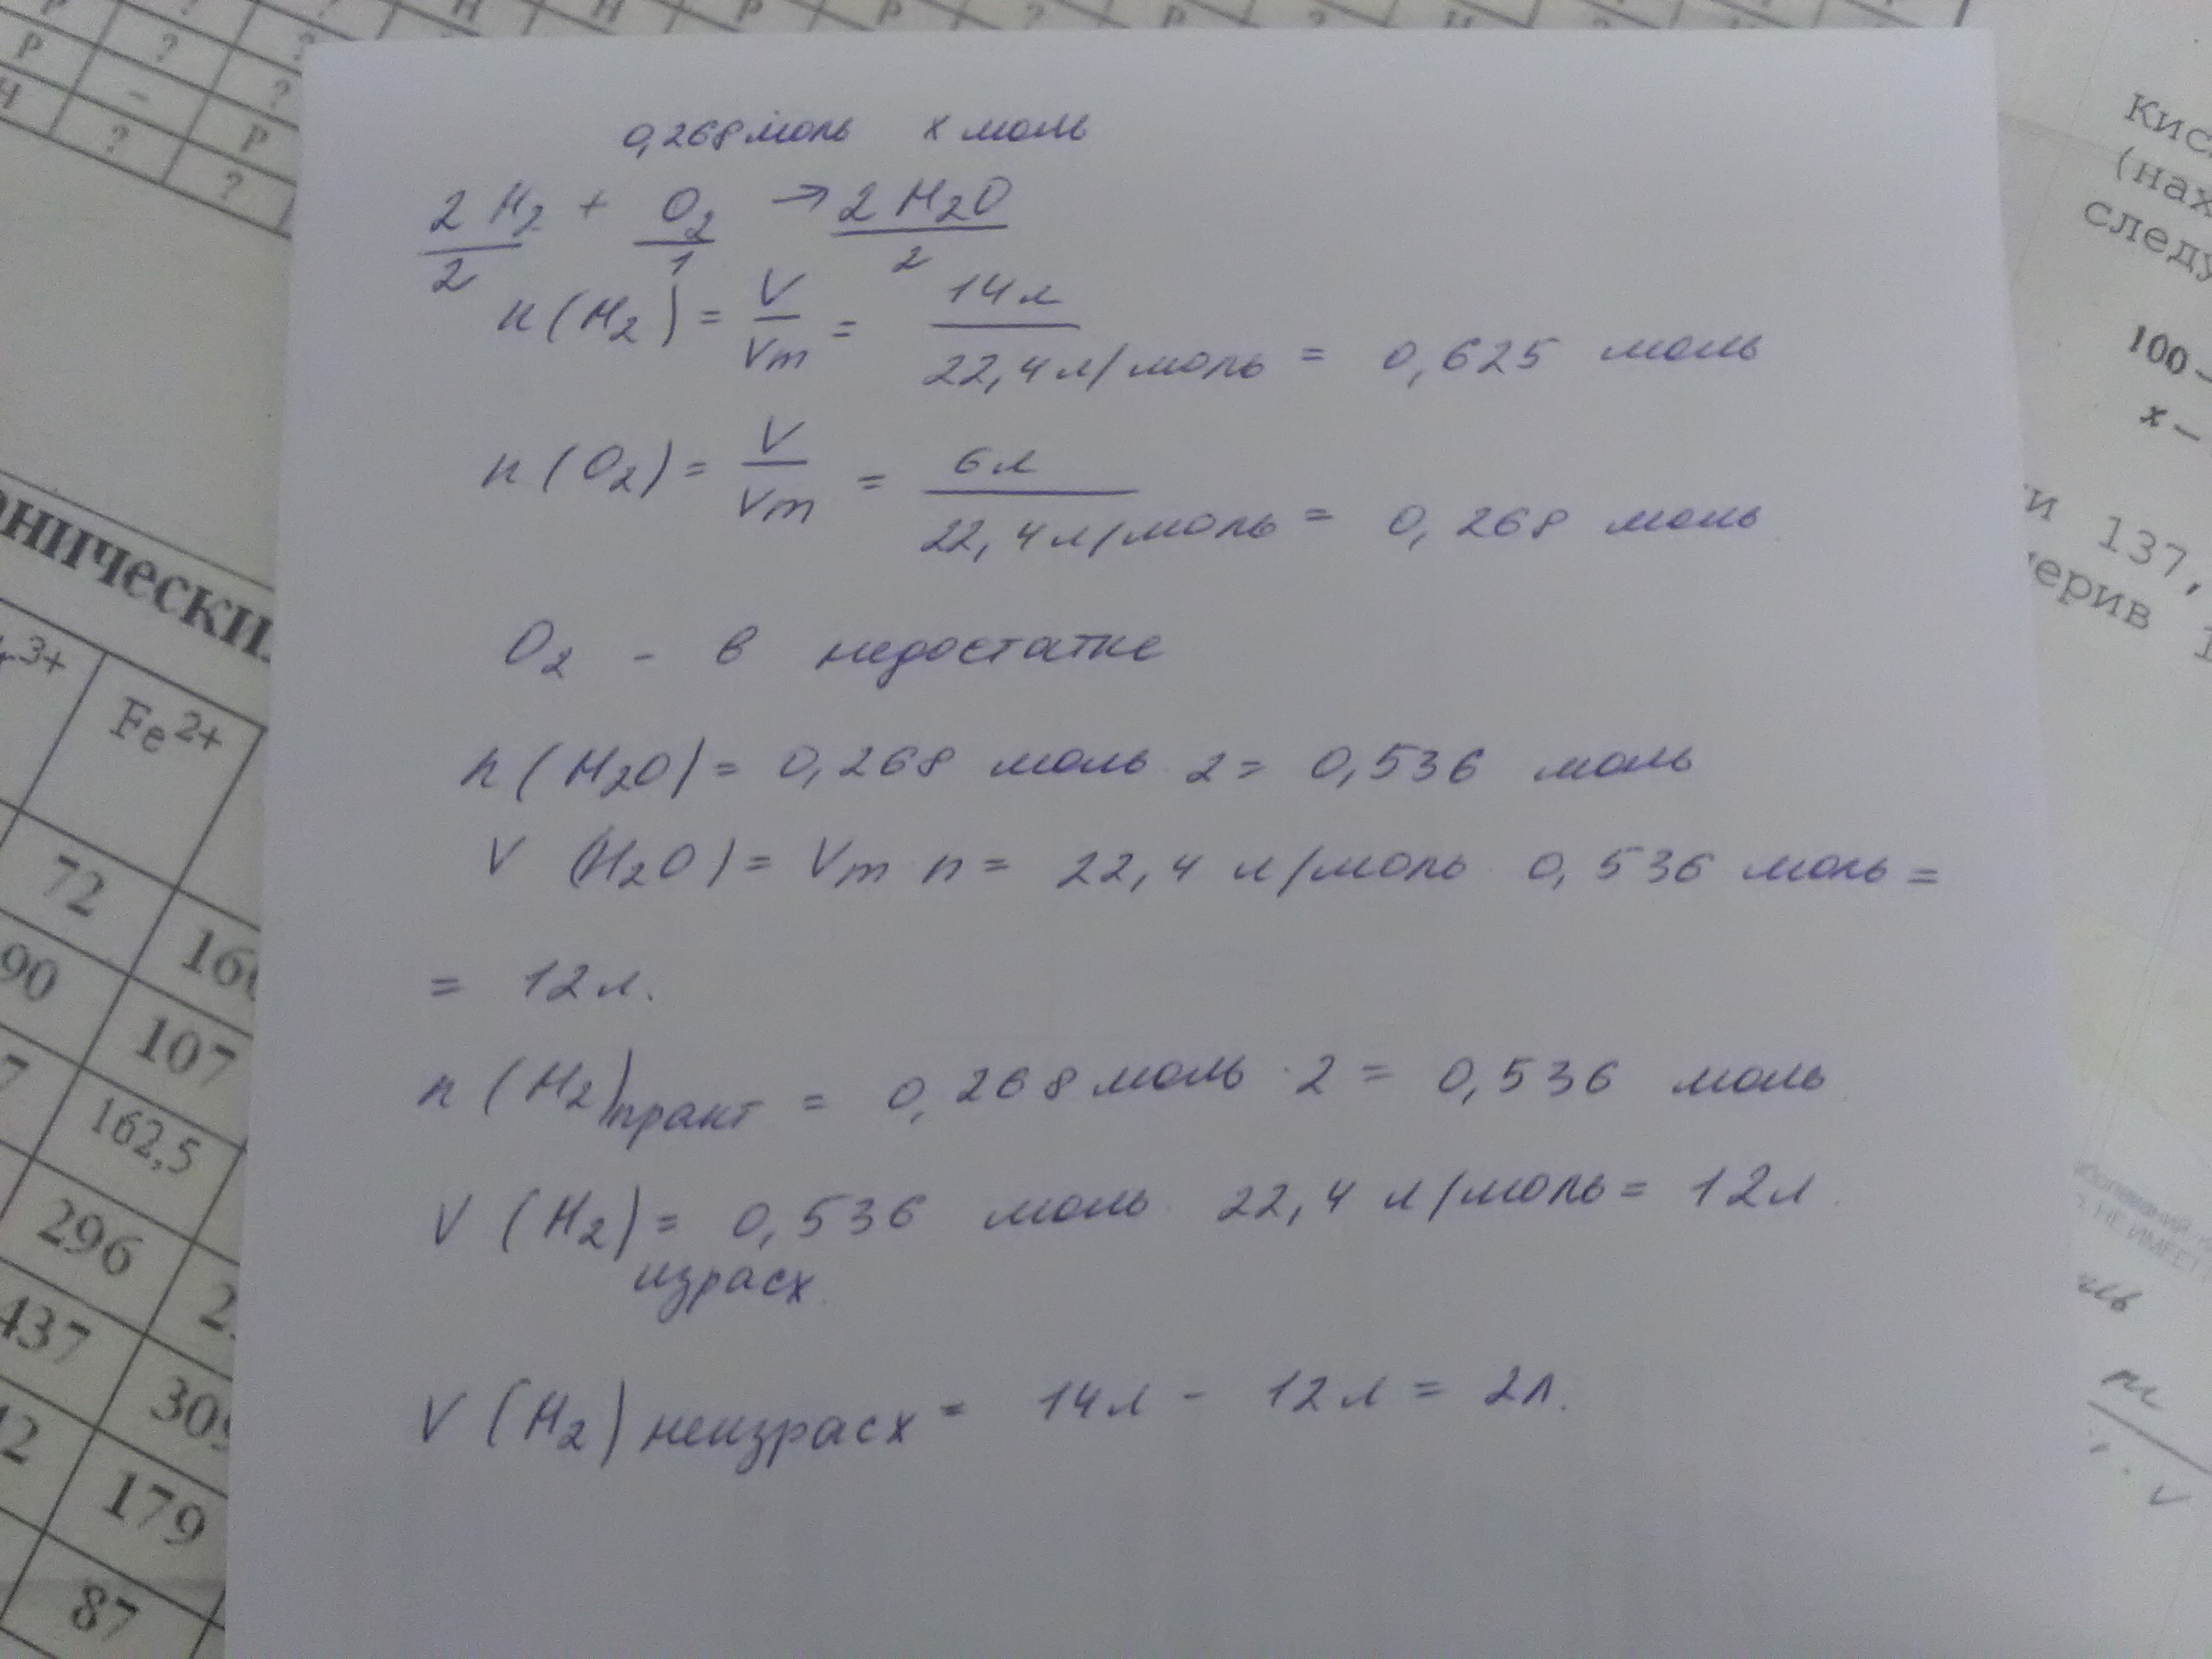 0,268 моль х моль
2 H2 + O2 → 2 H2O
2 1 2
n (H2) = V/Vm = 14 л / 22,4 л/моль = 0,625 моль
n (O2) = V/Vm = 6 л / 22,4 л/моль = 0,268 моль
O2 - в недостатке
n (H2O) = 0,268 моль · 2 = 0,536 моль
V (H2O) = Vm · n = 22,4 л/моль · 0,536 моль =
= 12 л.
n (H2)практ = 0,268 моль · 2 = 0,536 моль
V (H2) израсх = 0,536 моль · 22,4 л/моль = 12 л.
V (H2) неизрасх = 14 л - 12 л = 2 л.
3+
Fe 2+
72
90
107
162,5
296
437
179
87
(нах
следу
100 –
х –
137,